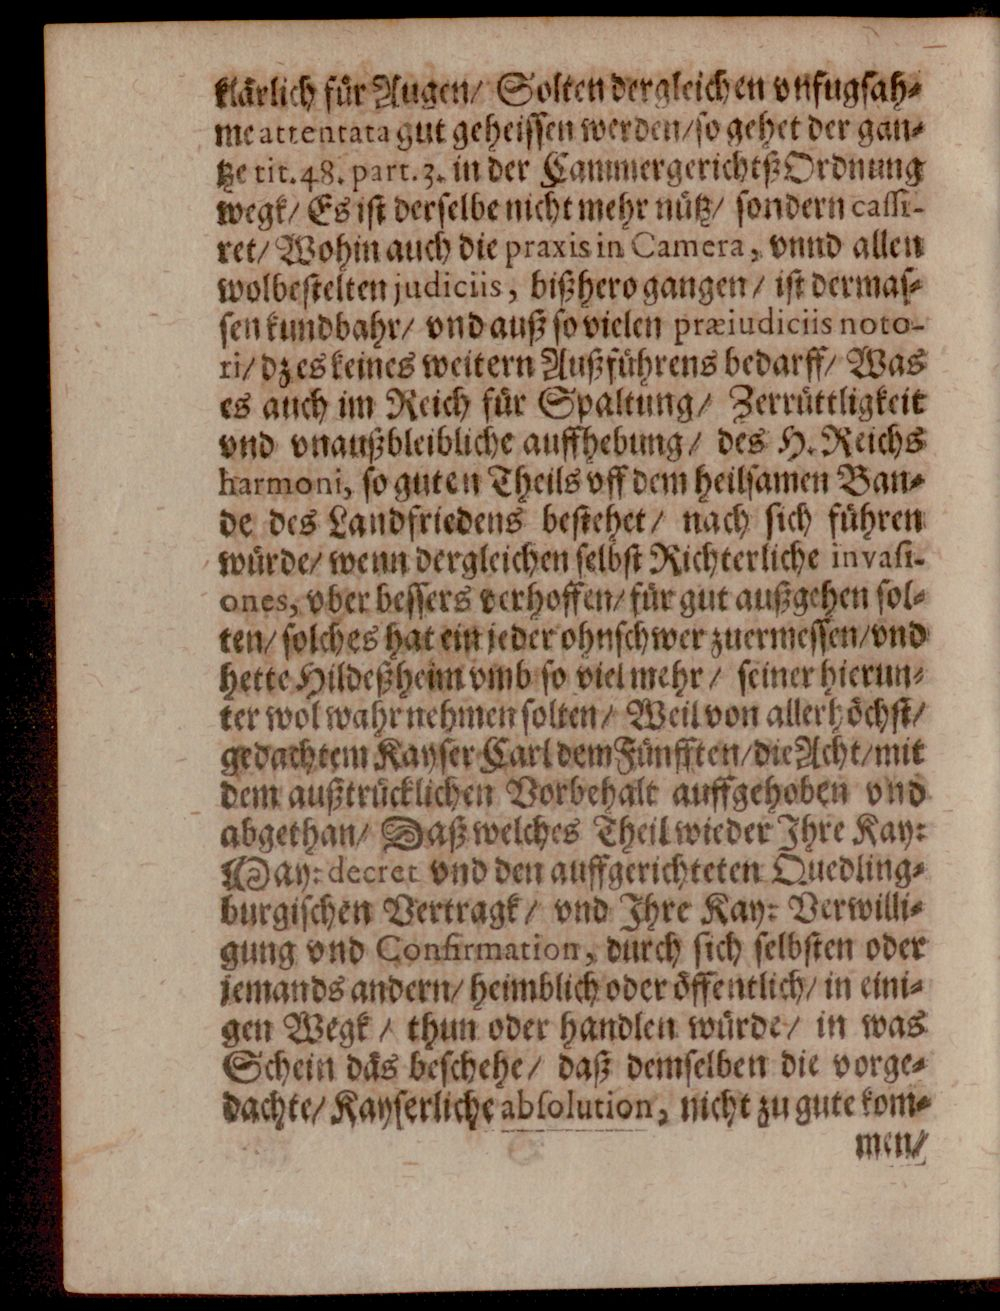 klärlich für Augen/ Solten dergleichen vnfugsah-
me attentata gut geheissen werden/ so gehet der gan-
tze tit. 48. part. 3. in der CammergerichtßOrdnung
wegk/ Es ist derselbe nicht mehr nütz/ sondern cassi-
ret/ Wohin auch die praxis in Camera, vnnd allen
wolbestelten judiciis, bißhero gangen/ ist dermas-
sen kundbahr/ vnd auß so vielen præiudiciis noto-
ri/ dz es keines weitern Außführens bedarff/ Was
es auch im Reich für Spaltung/ Zerrüttligkeit
vnd vnaußbleibliche auffhebung/ des H. Reichs
harmoni, so guten Theils vff dem heilsamen Ban-
de des Landfriedens bestehet/ nach sich führen
würde/ wenn dergleichen selbst Richterliche invasi-
ones, vber bessers verhoffen/ für gut außgehen sol-
ten/ solches hat ein jeder ohnschwer zuermessen/ vnd
hette Hildeßheim vmb so viel mehr/ seiner hierun-
ter wol wahr nehmen solten/ Weil von allerhöchst/
gedachtem Kayser Carl dem Fünfften/ die Acht/ mit
dem außtrücklichen Vorbehalt auffgehoben vnd
abgethan/ Daß welches Theil wieder Ihre Kay:
May: decret vnd den auffgerichteten Quedling-
burgischen Vertragk/ vnd Ihre Kay: Verwilli-
gung vnd Confirmation, durch sich selbsten oder
jemands andern/ heimblich oder öffentlich/ in eini-
gen Wegk/ thun oder handlen würde/ in was
Schein däs beschehe/ daß demselben die vorge-
dachte/ Kayserliche absolution, nicht zu gute kom-
men/